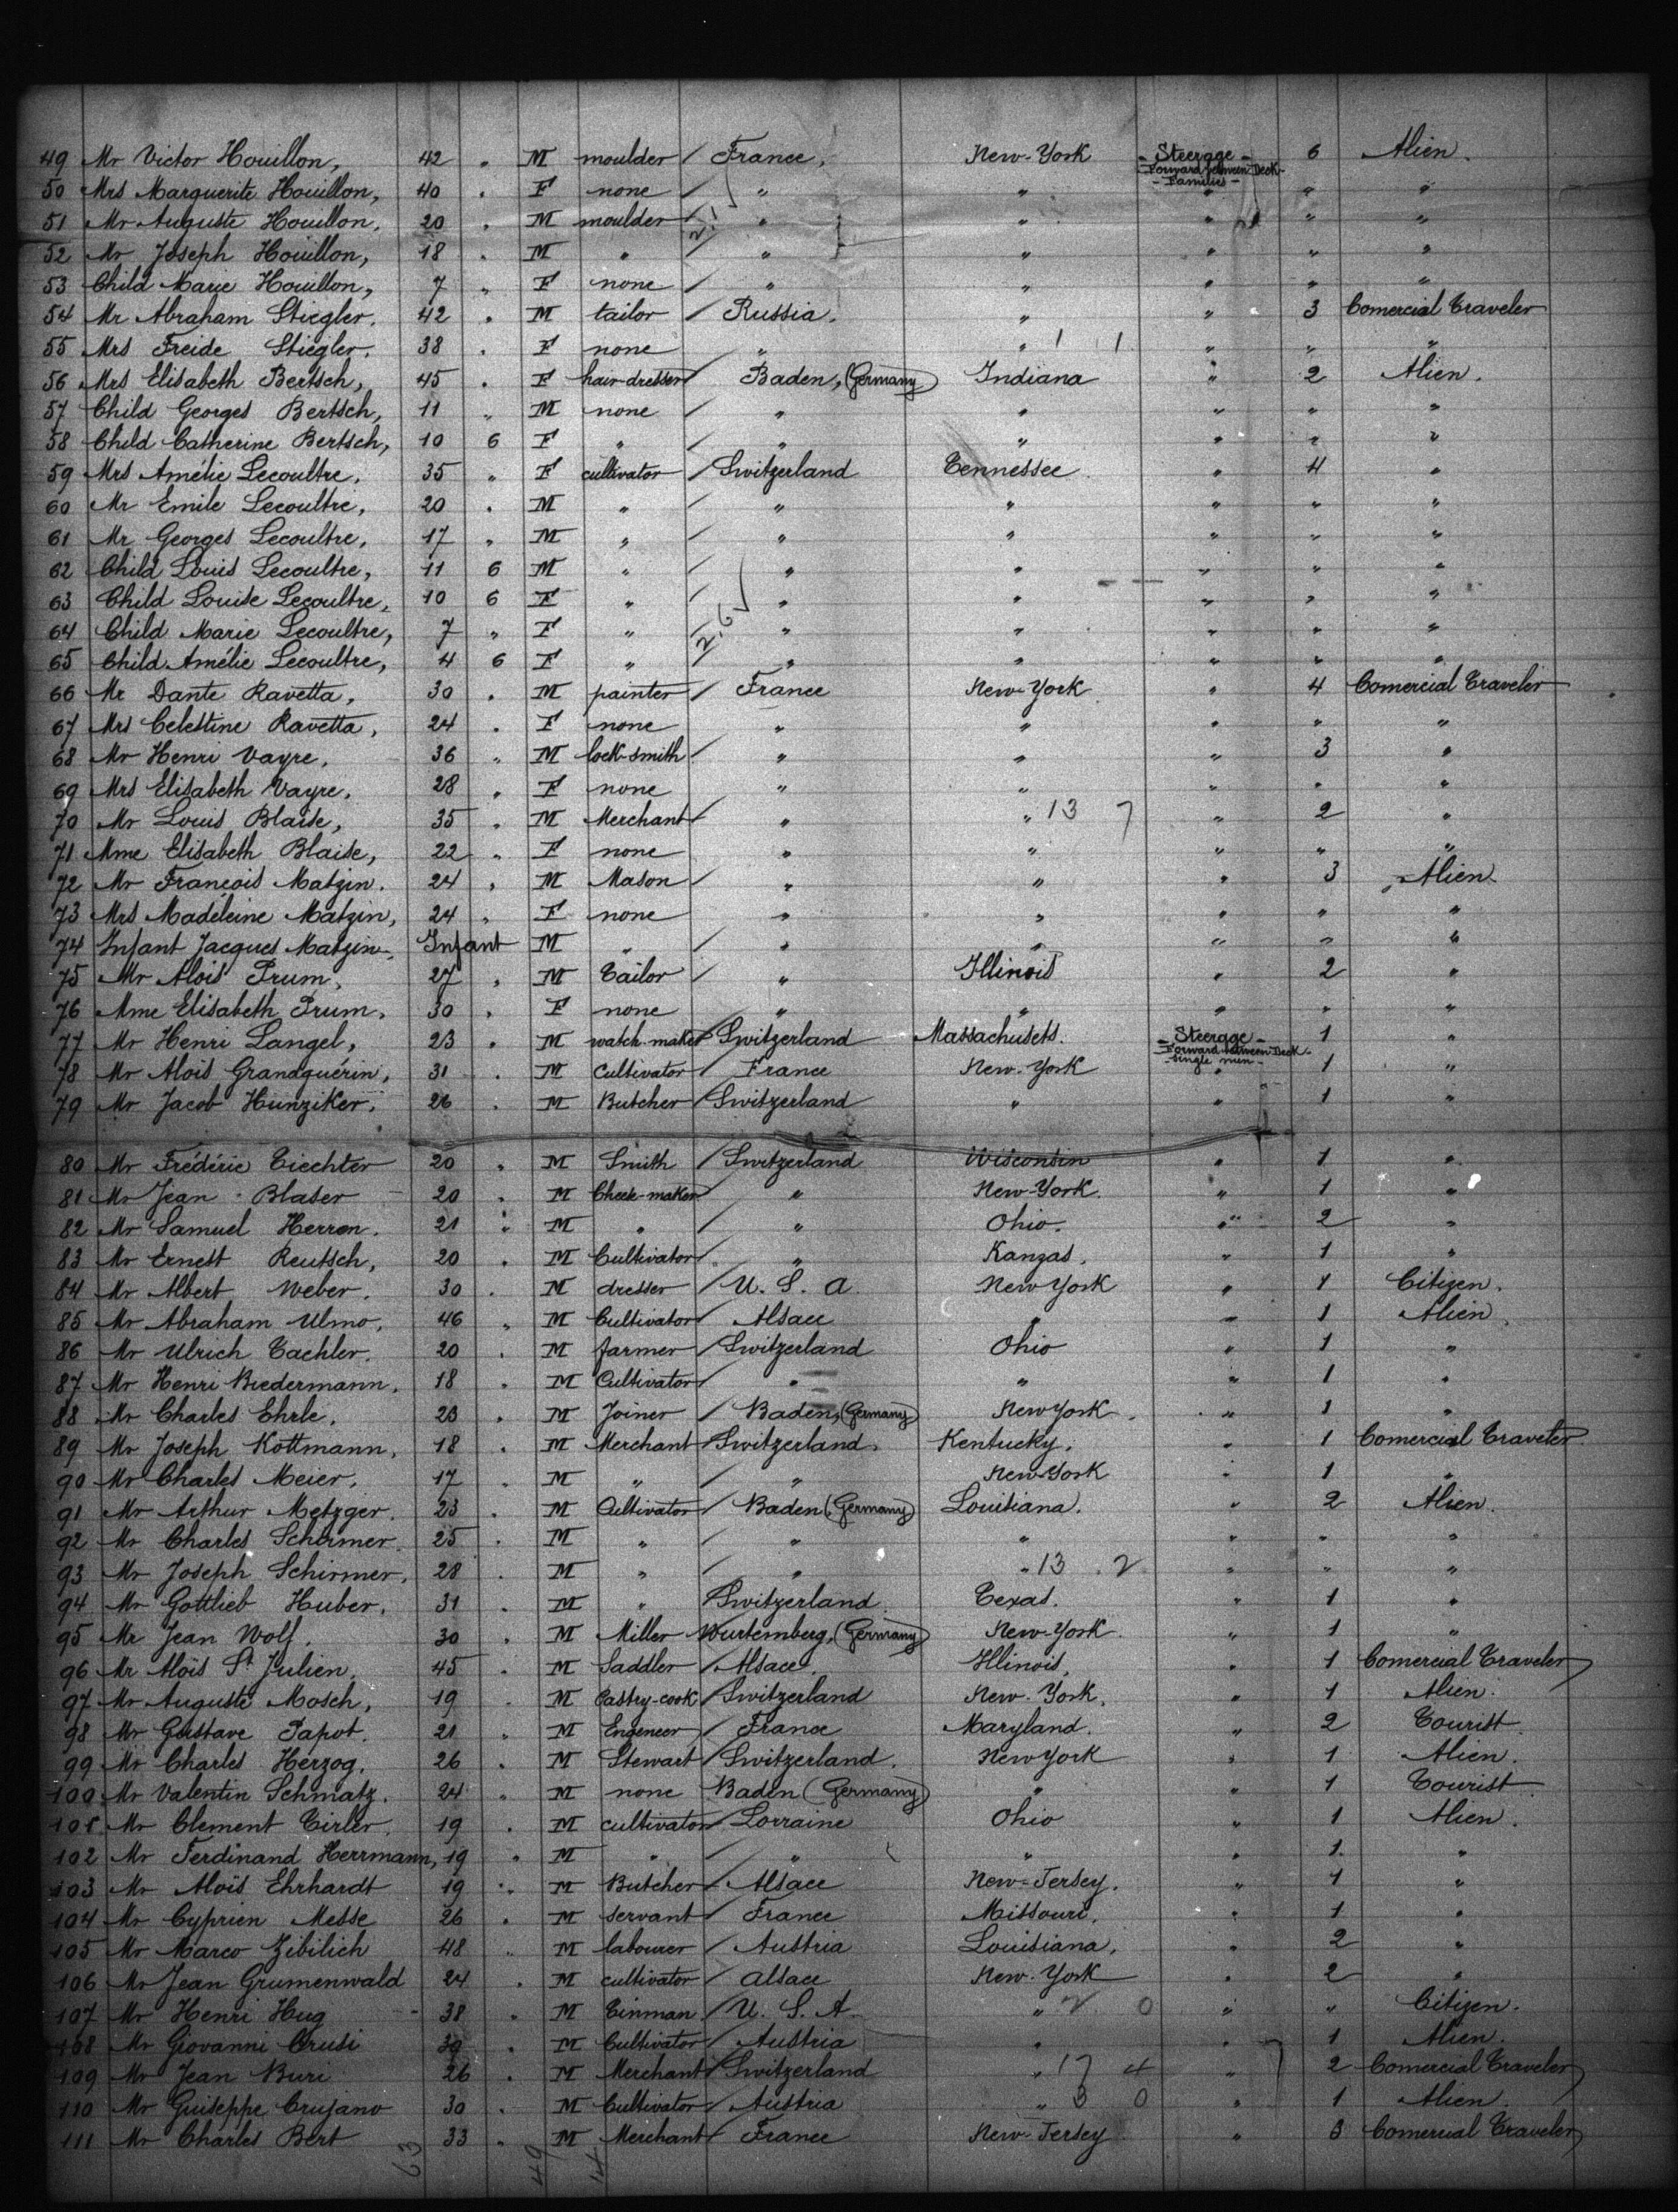 49 Mr Victor Houillon, 42 " M moulder / France, New-York - Steerage - 6 Alien.
- Forward between Deck -
- Families -
50 Mrs Marguerite Houillon, 40 " F none / " " " " "
51 Mr Auguste Houillon, 20 " M moulder / " " " " "
52 Mr Joseph Houillon, 18 " M " / " " " " "
53 Child Marie Houillon, 7 " F none / " " " " "
54 Mr Abraham Stiegler, 42 " M tailor / Russia. " " 3 Comercial Traveler
55 Mrs Freide Stiegler, 38 " F none / " " 1 1 " " "
56 Mrs Elisabeth Bertsch, 45 " F hair-dresser Baden, (Germany) Indiana " 2 Alien.
57 Child Georges Bertsch, 11 " M none / " " " " "
58 Child Catherine Bertsch, 10 6 F " / " " " " "
59 Mrs Amélie Lecoultre, 35 " F cultivator / Switzerland Tennessee " 4 "
60 Mr Emile Lecoultre, 20 " M " / " " " " "
61 Mr Georges Lecoultre, 17 " M " / " " " " "
62 Child Louis Lecoultre, 11 6 M " / " " " " "
63 Child Louise Lecoultre, 10 6 F " / " " " " "
64 Child Marie Lecoultre, 7 " F " / " " " " "
65 Child Amélie Lecoultre, 4 6 F " / " " " " "
66 Mr Dante Ravetta, 30 " M painter / France New-York " 4 Comercial Traveler
67 Mrs Celestine Ravetta, 24 " F none / " " " " "
68 Mr Henri Vayre, 36 " M lock-smith / " " " 3 "
69 Mrs Elisabeth Vayre, 28 " F none / " " " " "
70 Mr Louis Blaise, 35 " M Merchant / " " 13 7 " 2 "
71 Mme Elisabeth Blaise, 22 " F none / " " " " "
72 Mr Francois Matzin. 24 " M Mason / " " " 3 Alien
73 Mrs Madeleine Matzin, 24 " F none / " " " " "
74 Infant Jacques Matzin, Infant M " / " " " " "
75 Mr Alois Prum, 27 " M Tailor / " Illinois " 2 "
76 Mme Elisabeth Prum, 30 " F none / " " " " "
77 Mr Henri Langel, 23 " M watch-maker / Switzerland Massachusets. - Steerage - 1 "
- Forward between Deck -
- Single men -
78 Mr Alois Grandguérin, 31 " M Cultivator / France New-York " 1 "
79 Mr Jacob Hunziker, 26 " M Butcher / Switzerland " " 1 "
80 Mr Frédéric Tiechter 20 " M Smith / Switzerland Wisconsin " 1 "
81 Mr Jean Blaser 20 " M Cheese-maker / " New-York. " 1 "
82 Mr Samuel Herren. 21 " M " / " Ohio. " 2 "
83 Mr Ernest Reutsch, 20 " M Cultivator / " Kanzas. " 1 "
84 Mr Albert Weber. 30 " M dresser / U. S. A. New York " 1 Citizen.
85 Mr Abraham Ulmo, 46 " M Cultivator / Alsace " " 1 Alien.
86 Mr Ulrich Tachler. 20 " M farmer / Switzerland Ohio " 1 "
87 Mr Henri Biedermann, 18 " M Cultivator / " " " 1 "
88 Mr Charles Ehrle. 23 " M Joiner / Baden, (Germany) New York " 1 "
89 Mr Joseph Kottmann, 18 " M Merchant / Switzerland. Kentucky. " 1 Comercial Traveler
90 Mr Charles Meier, 17 " M " / " New-York " 1 "
91 Mr Arthur Metzger. 23 " M Cultivator / Baden (Germany) Louisiana. " 2 Alien.
92 Mr Charles Schirmer. 25 " M " / " " " " "
93 Mr Joseph Schirmer, 28 " M " / " " 13 2 " " "
94 Mr Gottlieb Huber, 31 " M " Switzerland Texas. " 1 "
95 Mr Jean Wolf. 30 " M Miller Wurtemberg, (Germany) New-York " 1 "
96 Mr Aloïs St Julien. 45 " M Saddler / Alsace Illinois. " 1 Comercial Traveler
97 Mr Auguste Mosch, 19 " M Pastry-cook / Switzerland New-York, " 1 Alien.
98 Mr Gustave Papot. 21 " M Engeneer / France Maryland. " 2 Tourist
99 Mr Charles Herzog. 26 " M Stewart / Switzerland. New York " 1 Alien.
100 Mr Valentin Schmatz. 24 " M none Baden (Germany) " " 1 Tourist
101 Mr Clement Tirler. 19 " M cultivator Lorraine Ohio " 1 Alien.
102 Mr Ferdinand Herrmann, 19 " M " / " " " 1 "
103 Mr Aloïs Ehrhardt 19 " M Butcher / Alsace New-Jersey. " 1 "
104 Mr Cyprien Messe 26 " M servant / France Missouri. " 1 "
105 Mr Marco Zibilich 48 " M labourer / Austria Louisiana, " 2 "
106 Mr Jean Grumenwald 24 " M cultivator / Alsace New-York " 2 "
107 Mr Henri Hug 38 " M Tinman / U. S. A. " 2 0 " " Citizen.
108 Mr Giovanni Crusi 39 " M Cultivator / Austria " " 1 Alien.
109 Mr Jean Buri 26 " M Merchant / Switzerland " 17 4 " 2 Comercial Traveler
110 Mr Guiseppe Crujano 30 " M Cultivator / Austria " 3 0 " 1 Alien.
111 Mr Charles Bert 33 " M Merchant / France New-Jersey " 3 Comercial Traveler
63 49 14